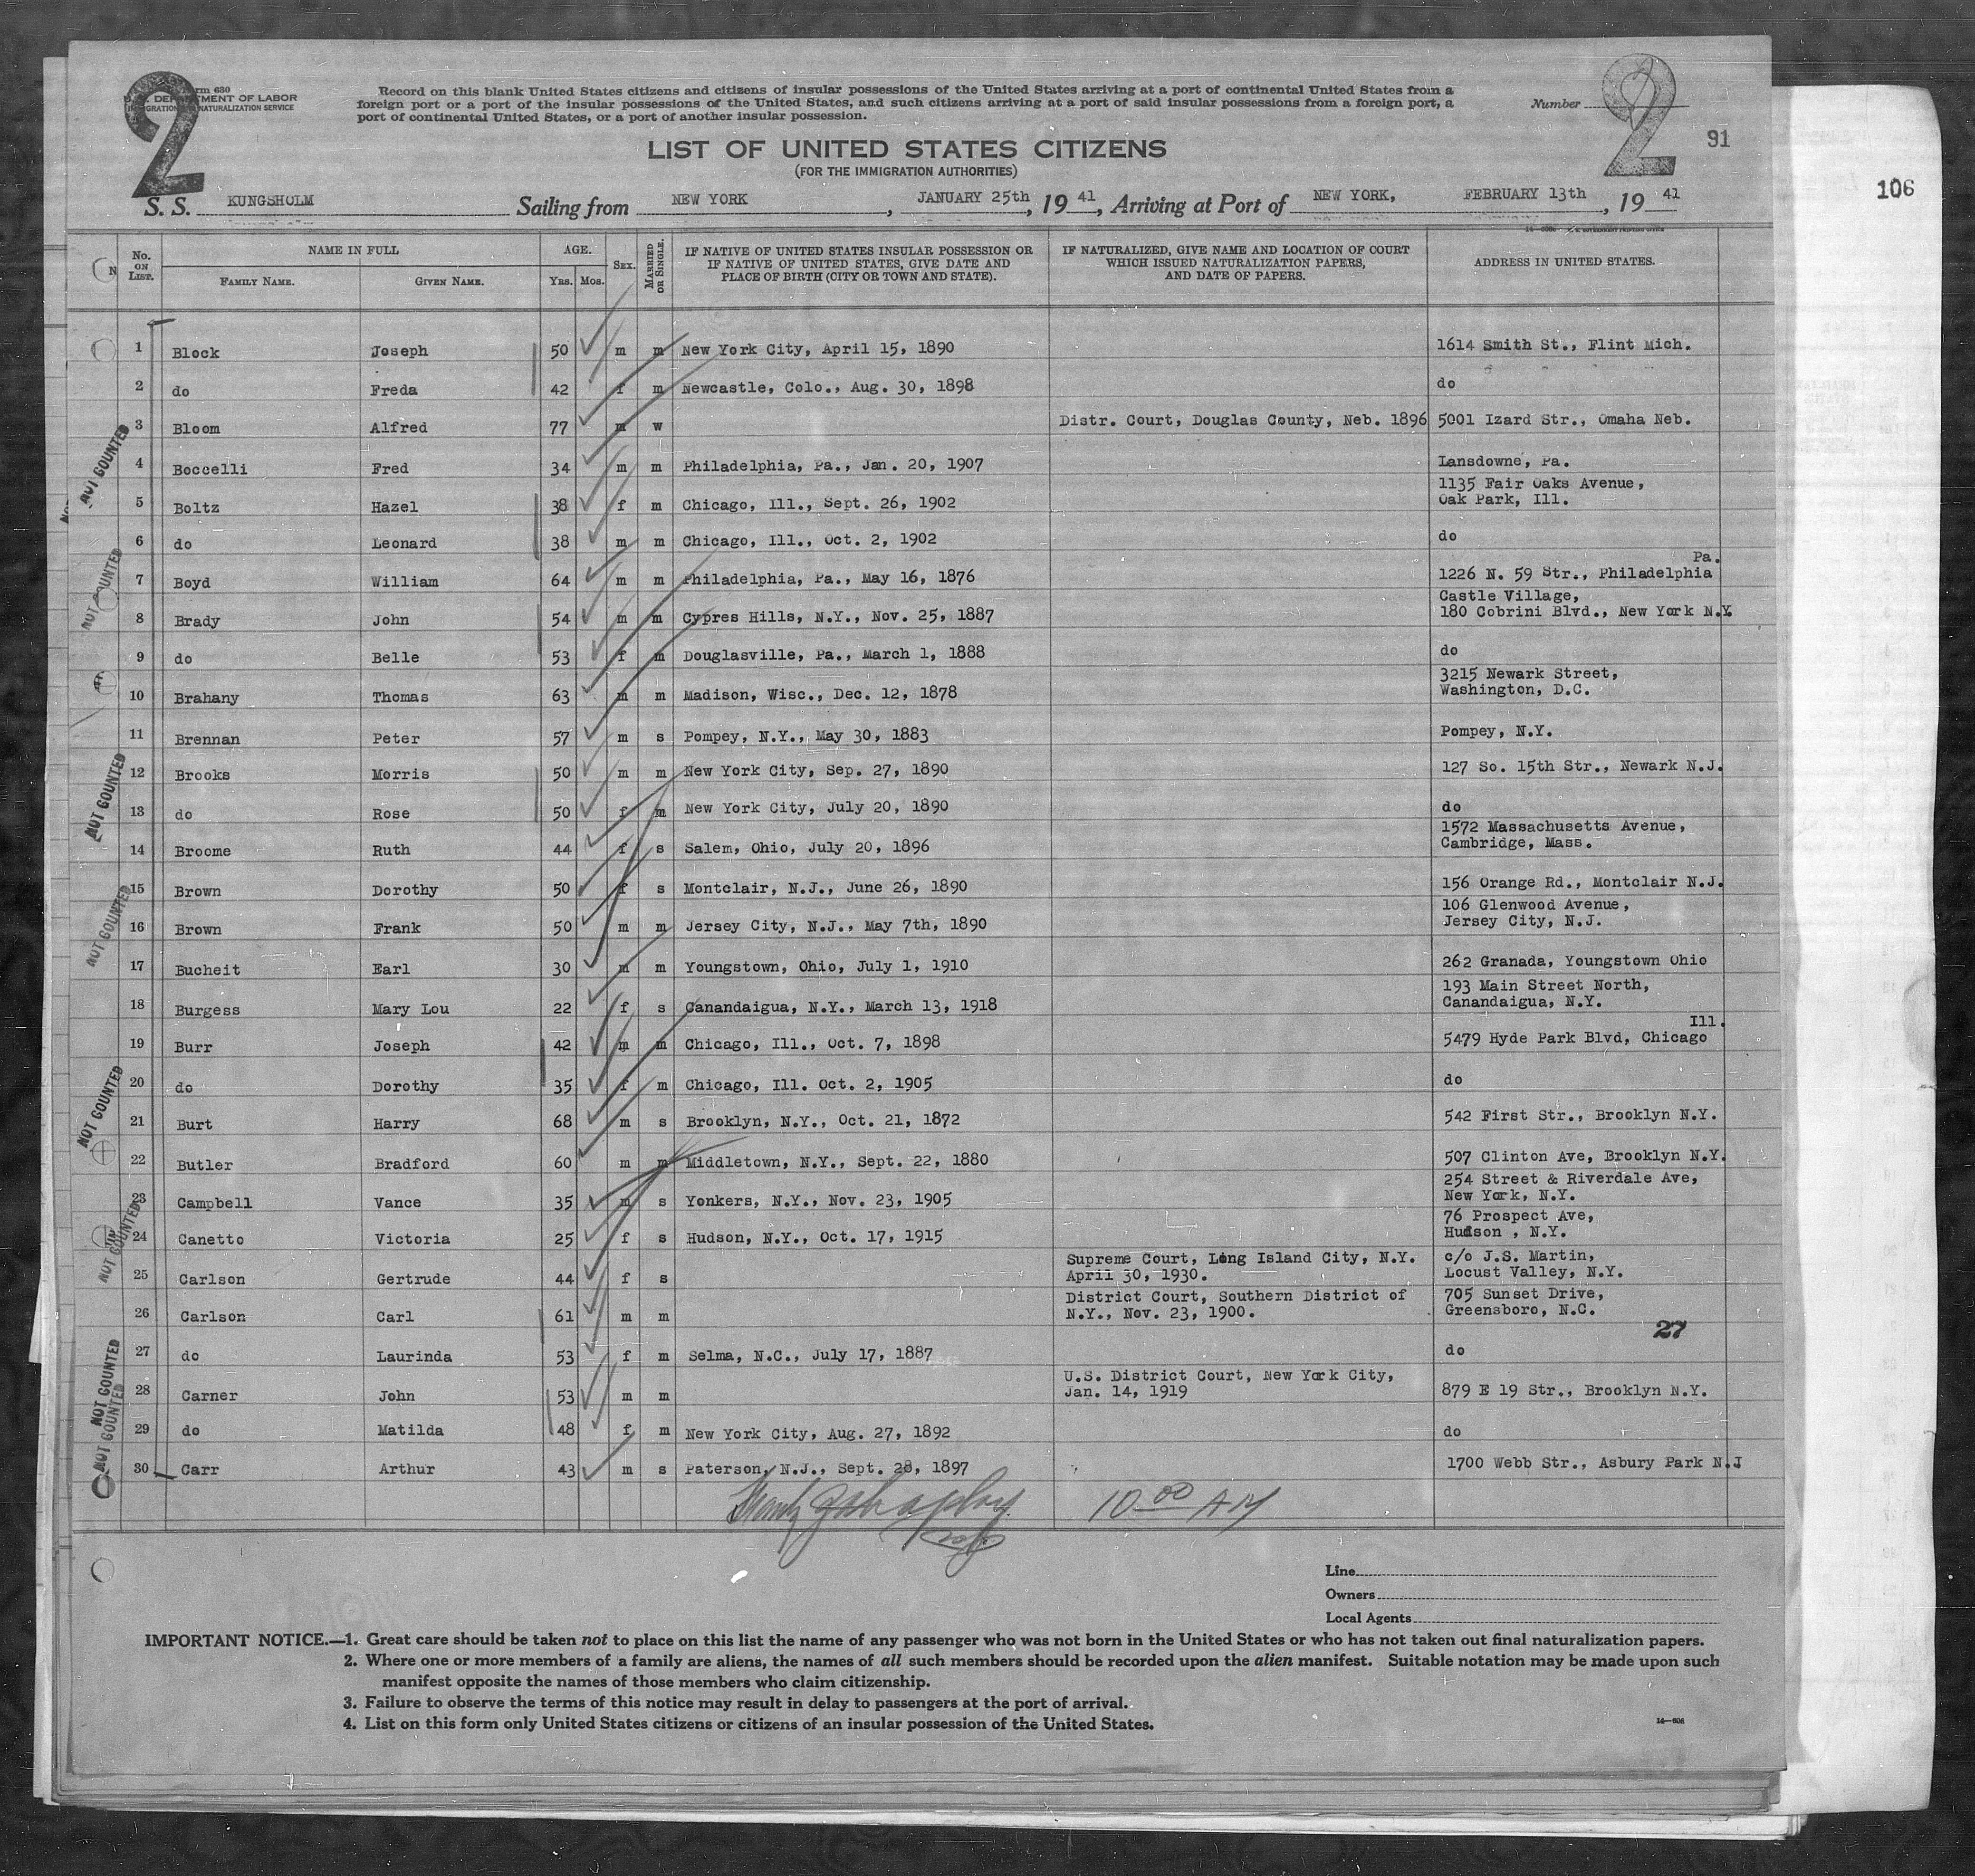 2
Form 630
U. S. DEPARTMENT OF LABOR
IMMIGRATION AND NATURALIZATION SERVICE
Record on this blank United States citizens and citizens of insular possessions of the United States arriving at a port of continental United States from a
foreign port or a port of the insular possessions of the United States, and such citizens arriving at a port of said insular possessions from a foreign port, a
port of continental United States, or a port of another insular possession.
Number
2
91
106
LIST OF UNITED STATES CITIZENS
(FOR THE IMMIGRATION AUTHORITIES)
S. S. KUNGSHOLM Sailing from NEW YORK, JANUARY 25th, 19 41, Arriving at Port of NEW YORK, FEBRUARY 13th, 19 41
No. ON LIST. NAME IN FULL FAMILY NAME. GIVEN NAME. AGE. YRS. MOS. SEX. MARRIED OR SINGLE. IF NATIVE OF UNITED STATES INSULAR POSSESSION OR IF NATIVE OF UNITED STATES, GIVE DATE AND PLACE OF BIRTH (CITY OR TOWN AND STATE). IF NATURALIZED, GIVE NAME AND LOCATION OF COURT WHICH ISSUED NATURALIZATION PAPERS, AND DATE OF PAPERS. ADDRESS IN UNITED STATES.
1 Block Joseph 50 m m New York City, April 15, 1890 1614 Smith St., Flint Mich.
2 do Freda 42 f m Newcastle, Colo., Aug. 30, 1898 do
3 Bloom Alfred 77 m w Distr. Court, Douglas County, Neb. 1896 5001 Izard Str., Omaha Neb.
4 Boccelli Fred 34 m m Philadelphia, Pa., Jan. 20, 1907 Lansdowne, Pa.
5 Boltz Hazel 38 f m Chicago, Ill., Sept. 26, 1902 1135 Fair Oaks Avenue,
Oak Park, Ill.
6 do Leonard 38 m m Chicago, Ill., Oct. 2, 1902 do
7 Boyd William 64 m m Philadelphia, Pa., May 16, 1876 1226 N. 59 Str., Philadelphia Pa.
8 Brady John 54 m m Cypres Hills, N.Y., Nov. 25, 1887 Castle Village,
180 Cobrini Blvd., New York N.Y.
9 do Belle 53 f m Douglasville, Pa., March 1, 1888 do
10 Brahany Thomas 63 m m Madison, Wisc., Dec. 12, 1878 3215 Newark Street,
Washington, D.C.
11 Brennan Peter 57 m s Pompey, N.Y., May 30, 1883 Pompey, N.Y.
12 Brooks Morris 50 m m New York City, Sep. 27, 1890 127 So. 15th Str., Newark N.J.
13 do Rose 50 f m New York City, July 20, 1890 do
14 Broome Ruth 44 f s Salem, Ohio, July 20, 1896 1572 Massachusetts Avenue,
Cambridge, Mass.
15 Brown Dorothy 50 f s Montclair, N.J., June 26, 1890 156 Orange Rd., Montclair N.J.
16 Brown Frank 50 m m Jersey City, N.J., May 7th, 1890 106 Glenwood Avenue,
Jersey City, N.J.
17 Bucheit Earl 30 m m Youngstown, Ohio, July 1, 1910 262 Granada, Youngstown Ohio
18 Burgess Mary Lou 22 f s Canandaigua, N.Y., March 13, 1918 193 Main Street North,
Canandaigua, N.Y.
19 Burr Joseph 42 m m Chicago, Ill., Oct. 7, 1898 5479 Hyde Park Blvd, Chicago Ill.
20 do Dorothy 35 f m Chicago, Ill. Oct. 2, 1905 do
21 Burt Harry 68 m s Brooklyn, N.Y., Oct. 21, 1872 542 First Str., Brooklyn N.Y.
22 Butler Bradford 60 m m Middletown, N.Y., Sept. 22, 1880 507 Clinton Ave, Brooklyn N.Y.
23 Campbell Vance 35 m s Yonkers, N.Y., Nov. 23, 1905 254 Street & Riverdale Ave,
New York, N.Y.
24 Canetto Victoria 25 f s Hudson, N.Y., Oct. 17, 1915 76 Prospect Ave,
Hudson , N.Y.
25 Carlson Gertrude 44 f s Supreme Court, Long Island City, N.Y. April 30, 1930. c/o J.S. Martin,
Locust Valley, N.Y.
26 Carlson Carl 61 m m District Court, Southern District of N.Y., Nov. 23, 1900. 705 Sunset Drive,
Greensboro, N.C.
27
27 do Laurinda 53 f m Selma, N.C., July 17, 1887 do
28 Carner John 53 m m U.S. District Court, New York City, Jan. 14, 1919 879 E 19 Str., Brooklyn N.Y.
29 do Matilda 48 f m New York City, Aug. 27, 1892 do
30 Carr Arthur 43 m s Paterson, N.J., Sept. 28, 1897 1700 Webb Str., Asbury Park N.J
NOT COUNTED
NOT COUNTED
NOT COUNTED
NOT COUNTED
NOT COUNTED
NOT COUNTED
NOT COUNTED
NOT COUNTED
10 00 AM
Line
Owners
Local Agents
IMPORTANT NOTICE.—1. Great care should be taken not to place on this list the name of any passenger who was not born in the United States or who has not taken out final naturalization papers.
2. Where one or more members of a family are aliens, the names of all such members should be recorded upon the alien manifest. Suitable notation may be made upon such
manifest opposite the names of those members who claim citizenship.
3. Failure to observe the terms of this notice may result in delay to passengers at the port of arrival.
4. List on this form only United States citizens or citizens of an insular possession of the United States.
14—606